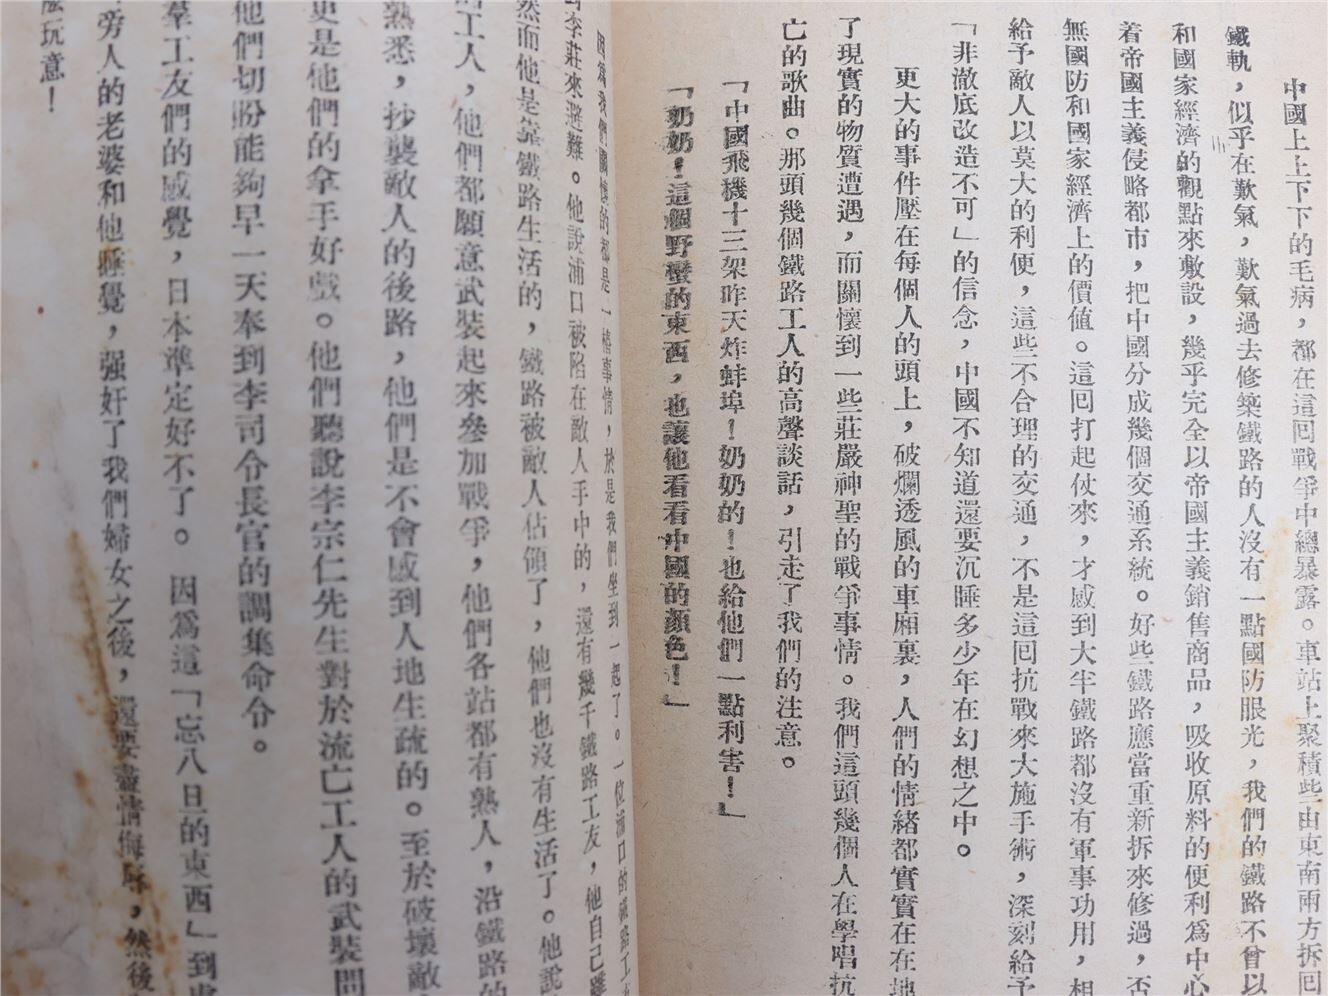 中國上上下下的毛病，都在這囘戰爭中總暴露。車站上聚積些由東南兩方拆囘
鐵軌，似乎在歎氣，歎氣過去修築鐵路的人沒有一點國防眼光，我們的鐵路不曾以
和國家經濟的觀點來敷設，幾乎完全以帝國主義銷售商品，吸收原料的便利爲中心
着帝國主義侵略都市，把中國分成幾個交通系統。好些鐵路應當重新拆來修過，否
無國防和國家經濟上的價値。這囘打起仗來，才感到大半鐵路都沒有軍事功用，相
給予敵人以莫大的利便，這些不合理的交通，不是這囘抗戰來大施手術，深刻給予
「非澈底改造不可」的信念，中國不知道還要沉睡多少年在幻想之中。
更大的事件壓在每個人的頭上，破爛透風的車廂裏，人們的情緒都實實在在地
了現實的物質遭遇，而關懷到一些莊嚴神聖的戰爭事情。我們這頭幾個人在學唱抗
亡的歌曲。那頭幾個鐵路工人的高聲談話，引走了我們的注意。
「中國飛機十三架昨天炸蚌埠！奶奶的！也給他們一點利害！」
「奶奶！這個野蠻的東西，也讓他看看中國的顏色！」
因爲我們關懷的都是一樁事情，於是我們坐到一起了。一位浦口的鐵路工
到李莊來避難。他說浦口被陷在敵人手中的，還有幾千鐵路工友，他自己雖
然而他是靠鐵路生活的，鐵路被敵人佔領了，他們也沒有生活了。他說
工人，他們都願意武裝起來參加戰爭，他們各站都有熟人，沿鐵路的
熟悉，抄襲敵人的後路，他們是不會感到人地生疏的。至於破壞敵
更是他們的拿手好戲。他們聽說李宗仁先生對於流亡工人的武裝問
他們切盼能夠早一天奉到李司令長官的調集命令。
羣工友們的感覺，日本準定好不了。因爲這「忘八旦的東西」到處
旁人的老婆和他睡覺，强奸了我們婦女之後，還要盡情侮辱，然後
麽玩意！